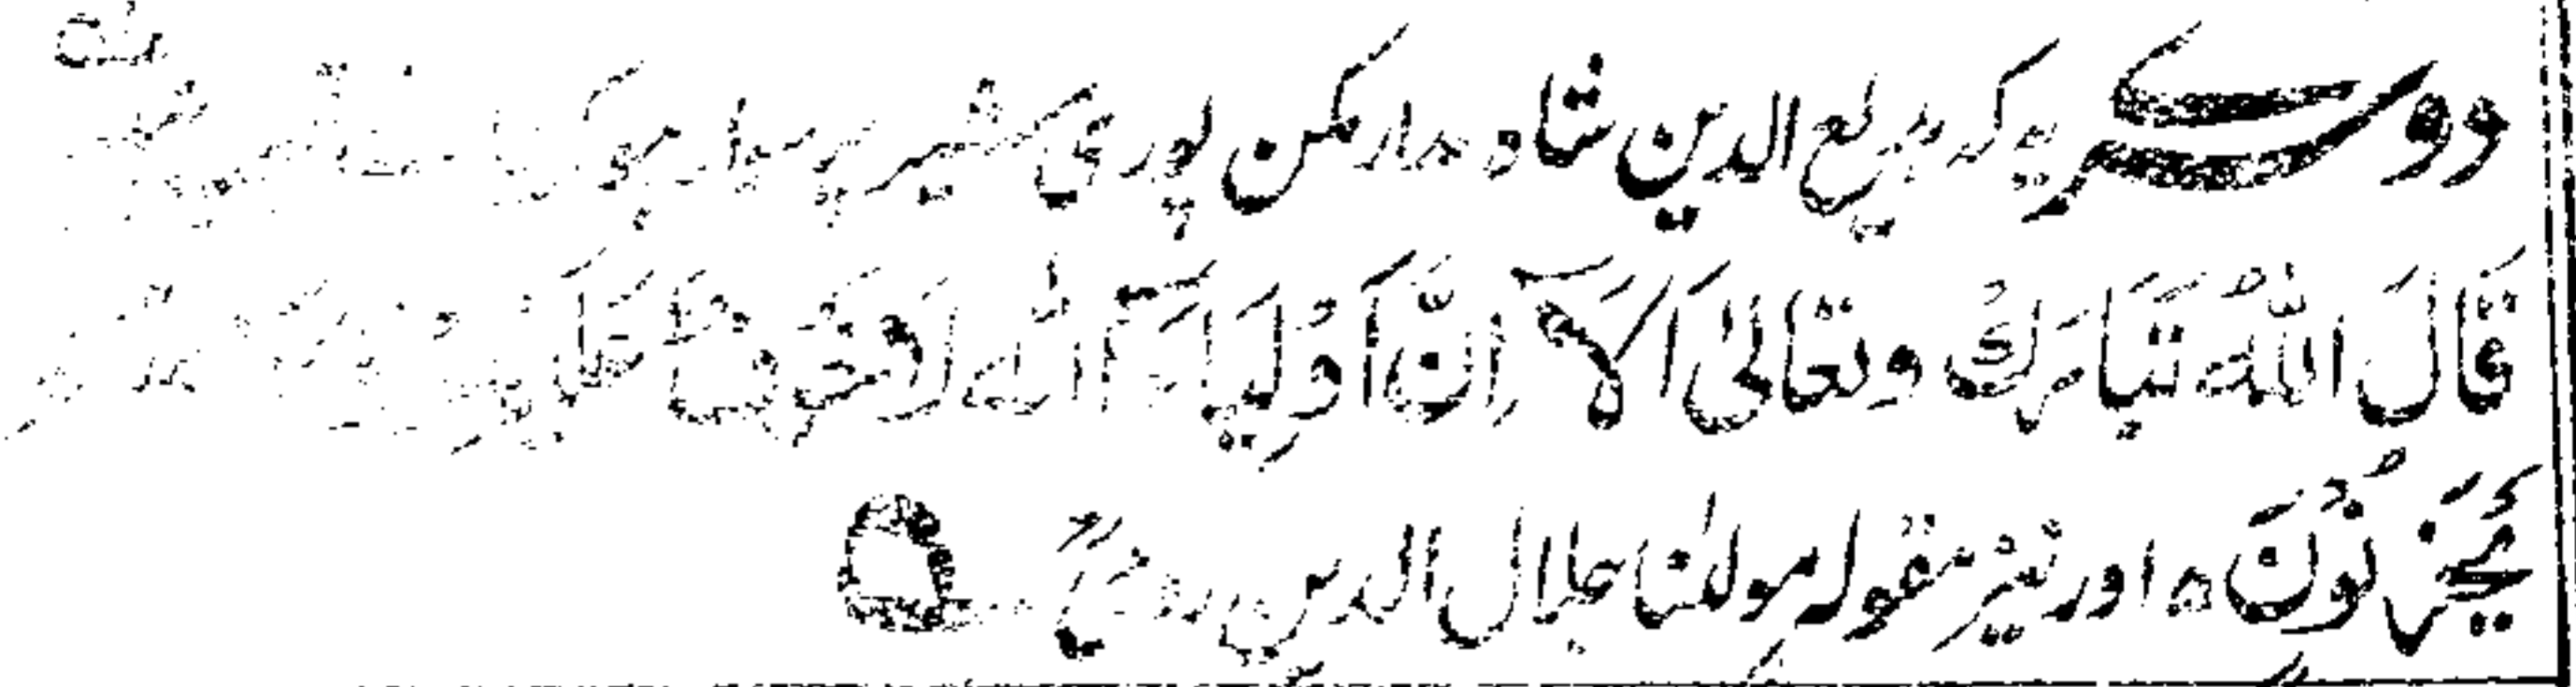 دوسرے یہ کہ بدیع الدین شاہ مدار مکن پوری شیر پر سوار ہو کر
قَالَ اللّٰهُ تَبَارَكَ وتَعَالىٰ اَلَآ اِنَّ اَوْلِيَآءَ اللّٰهِ لَاخَوْفٌ عَلَيْهِمْ
يَحْزَنُوْنَ ہ اور نیز مقولہ مولٰنا جلال الدین رومیؒ